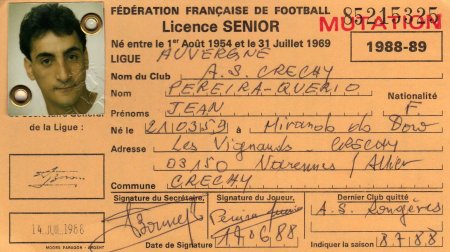 FÉDÉRATION FRANÇAISE DE FOOTBALL 85215325
Licence SENIOR MUTATION
Né entre le 1er Août 1954 et le 31 Juillet 1969 1988-89
LIGUE AUVERGNE
Nom du Club A.S. CRECHY
Nom PEREIRA-QUERIO
Prénoms JEAN
Nationalité F
Né le 21 03 59 à
Secrétaire Général de la Ligue :
Adresse Les Vignauds CRECHY
03150 Varennes / Allier
Commune CRECHY
Signature du Secrétaire, Signature du Joueur, Dernier Club quitté
A.S. Rongères
14 JUIL 1988 17.06.88 Indiquer la saison 87.88